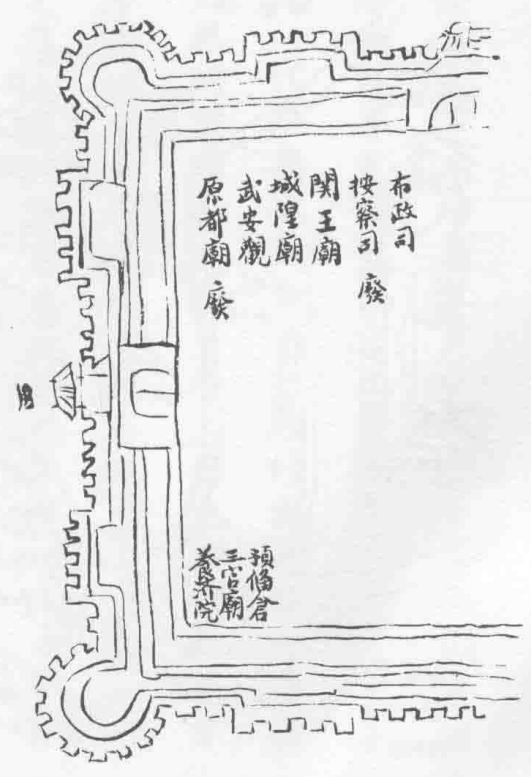 布政司
按察司 廢
関王廟
城隍廟
武安觀
原都廟 廢
預俻倉
三官廟
養济院